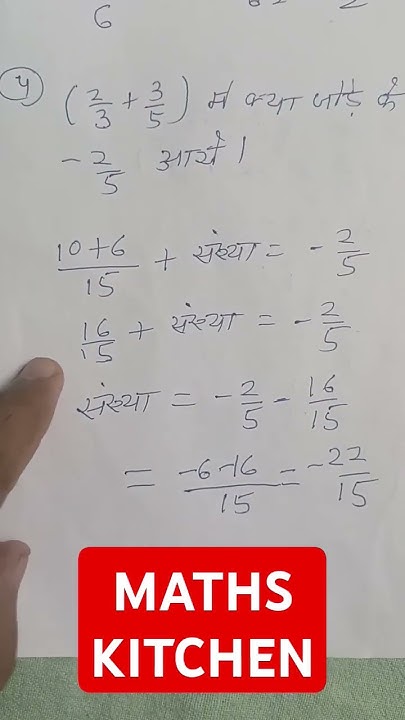 6
(4) (2/3 + 3/5) में क्या जोड़े के
-2/5 आये।
10+6/15 + संख्या = -2/5
16/15 + संख्या = -2/5
संख्या = -2/5 - 16/15
= -6-16/15 = -22/15
MATHS
KITCHEN